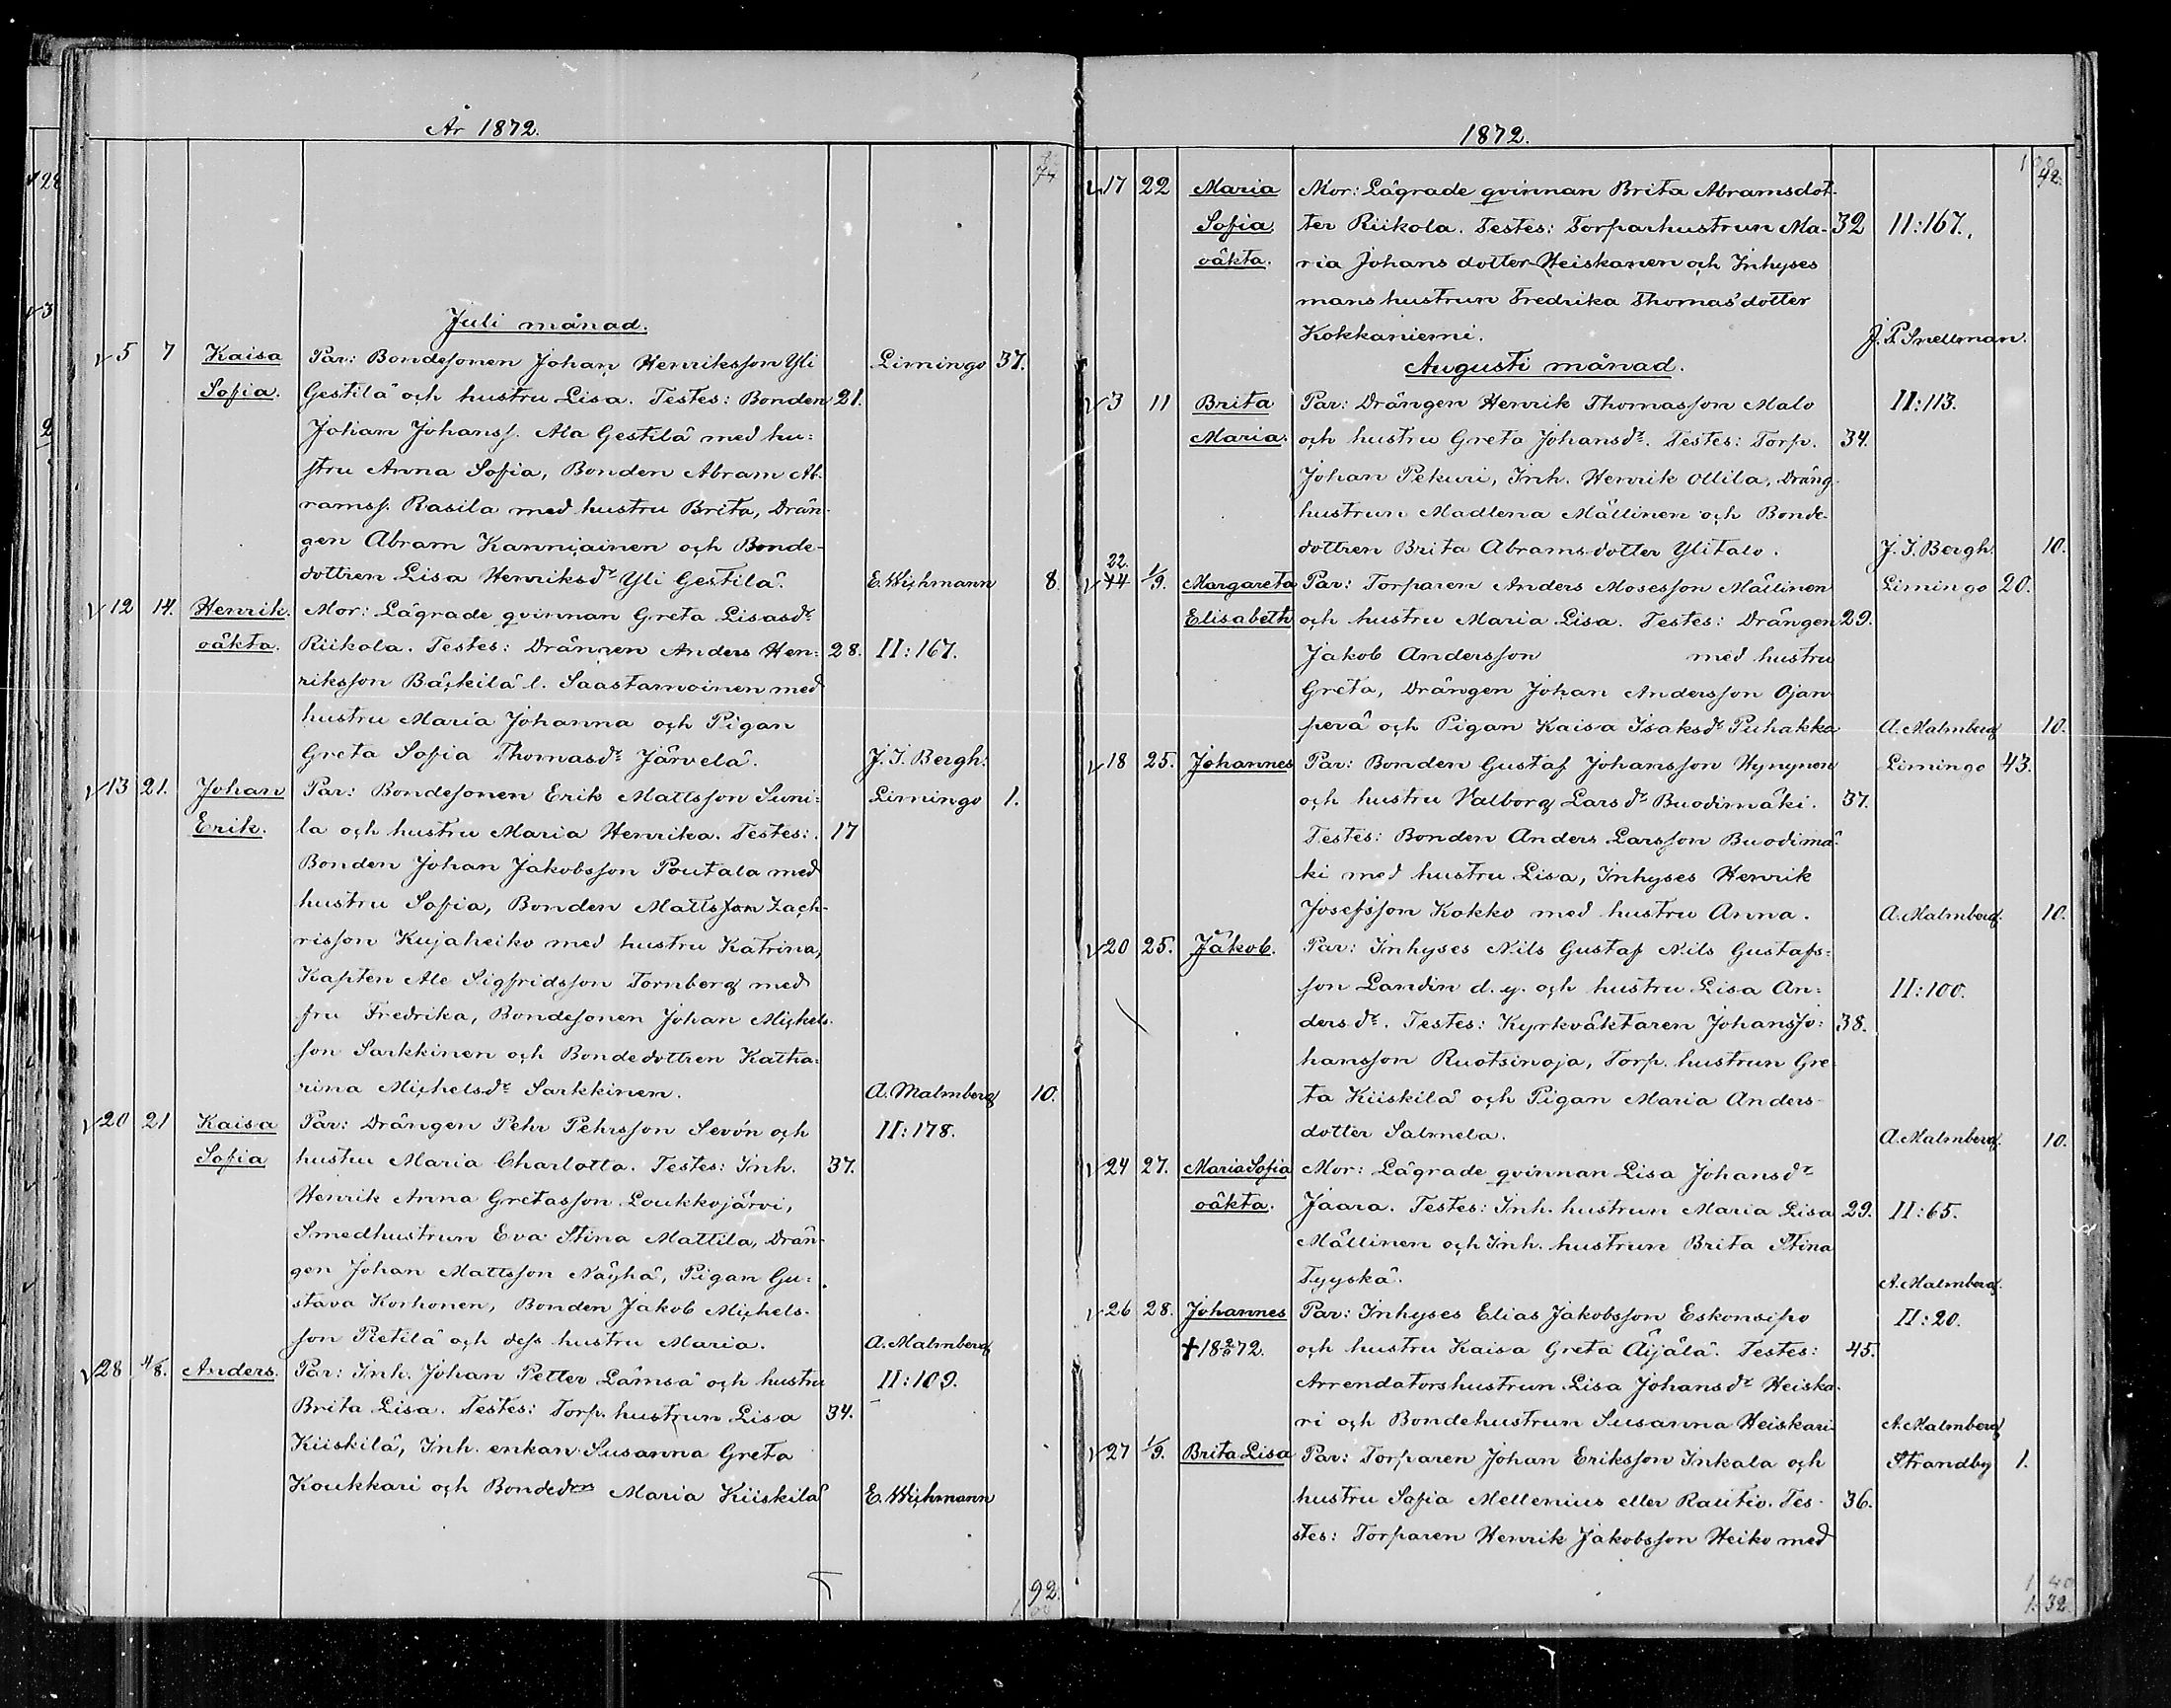 År 1872.
74
Juli månad.
5 7 Kaisa Par: Bondesonen Johan Henriksson Yli Limingo 37.
Sofia. Gestilä och hustru Lisa. Testes: Bonden 21.
Johan Johanss. Ala Gestilä med hu:
stru Anna Sofia, Bonden Abram Ab-
ramss. Rasila med hustru Brita, Drän-
gen Abram Kanniainen och Bonde-
dottren Lisa Henriksdr Yli Gestilä. E. Wichmann 8.
12 14. Henrik. Mor: Lägrade qvinnan Greta Lisasdr
oäkta. Riikola. Testes: Drängen Anders Hen- 28. II:167.
riksson Bäckilä l. Saastamoinen med
hustru Maria Johanna och Pigan
Greta Sofia Thomasdr Järvelä. J. I. Bergh.
13 21. Johan Par: Bondesonen Erik Mattsson Suni: Limingo 1.
Erik. la och hustru Maria Henrika. Testes: 17
Bonden Johan Jakobsson Poutala med
hustru Sofia, Bonden Mattsson Zach-
risson Kujaheiko med hustru Katrina,
Kapten Ale Sigfridsson Tornberg med
fru Fredrika, Bondesonen Johan Michels-
son Sarkkinen och Bondedottren Katha-
rina Michelsdr Sarkkinen. A. Malmberg 10.
20 21 Kaisa Par: Drängen Pehr Pehrsson Sevón och II:178.
Sofia hustru Maria Charlotta. Testes: Inh. 37.
Henrik Anna Gretasson Loukkojärvi,
Smedhustrun Eva Stina Mattila, Drän-
gen Johan Mattsson Näyhä, Pigan Gu-
stava Korhonen, Bonden Jakob Michels-
son Pietilä och dess hustru Maria. A. Malmberg
28 4/8. Anders. Par: Inh. Johan Petter Lämsä och hustru II:109.
Brita Lisa. Testes: Torp. hustrun Lisa 34.
Kiiskilä, Inh. enkan Susanna Greta
Koukkari och Bondedrn Maria Kiiskilä E. Wichmann
92.
1872.
17 22 Maria Mor: Lägrade qvinnan Brita Abramsdot-
Sofia, ter Riikola. Testes: Torparhustrun Ma- 32 II:167.
oäkta. ria Johansdotter Heiskanen och Inhyses
manshustrun Fredrika Thomasdotter
Kokkaniemi. J. P. Snellman.
Augusti månad.
3 11 Brita Par: Drängen Henrik Thomasson Malo II:113.
Maria. och hustru Greta Johansdr. Testes: Torp. 34.
Johan Pekuri, Inh. Henrik Ollila, Dräng-
hustrun Madlena Mällinen och Bonde-
dottren Brita Abramsdotter Ylitalo. J. I. Bergh. 10.
22.
14 1/9. Margareta Par: Torparen Anders Mosesson Mällinen Limingo 20.
Elisabeth och hustru Maria Lisa. Testes: Drängen 29.
Jakob Andersson med hustru
Greta, Drängen Johan Andersson Ojan-
perä och Pigan Kaisa Isaksdr Puhakka A. Malmberg 10.
18 25. Johannes Par: Bonden Gustaf Johansson Hynynen Limingo 43.
och hustru Valborg Larsdr Buodimäki. 37.
Testes: Bonden Anders Larsson Buodimä-
ki med hustru Lisa, Inhyses Henrik
Josefsson Kokko med hustru Anna. A. Malmberg. 10.
20 25. Jakob. Par: Inhyses Nils Gustaf Nils Gustafs-
son Landin d.y. och hustru Lisa An- II:100.
dersdr. Testes: Kyrkväktaren Johan Jo- 38.
hansson Ruotsinoja, Torp. hustrun Gre-
ta Kiiskilä och Pigan Maria Anders-
dotter Salmela. A. Malmberg. 10.
24 27. Maria Sofia Mor: Lägrade qvinnan Lisa Johansdr
oäkta. Jaara. Testes: Inh. hustrun Maria Lisa 29. II:65.
Mällinen och Inh. hustrun Brita Stina
Tyyskä. A. Malmberg.
26 28. Johannes Par: Inhyses Elias Jakobsson Eskonsipo II:20.
†18 72. och hustru Kaisa Greta Äijälä. Testes: 45.
Arrendatorshustrun Lisa Johansdr Heiska-
ri och Bondehustrun Susanna Heiskari A. Malmberg
27 1/9. Brita Lisa Par: Torparen Johan Eriksson Inkala och Strandby 1.
hustru Sofia Mellenius eller Rautio. Tes- 36.
stes: Torparen Henrik Jakobsson Heiko med
1. 40
1. 32.